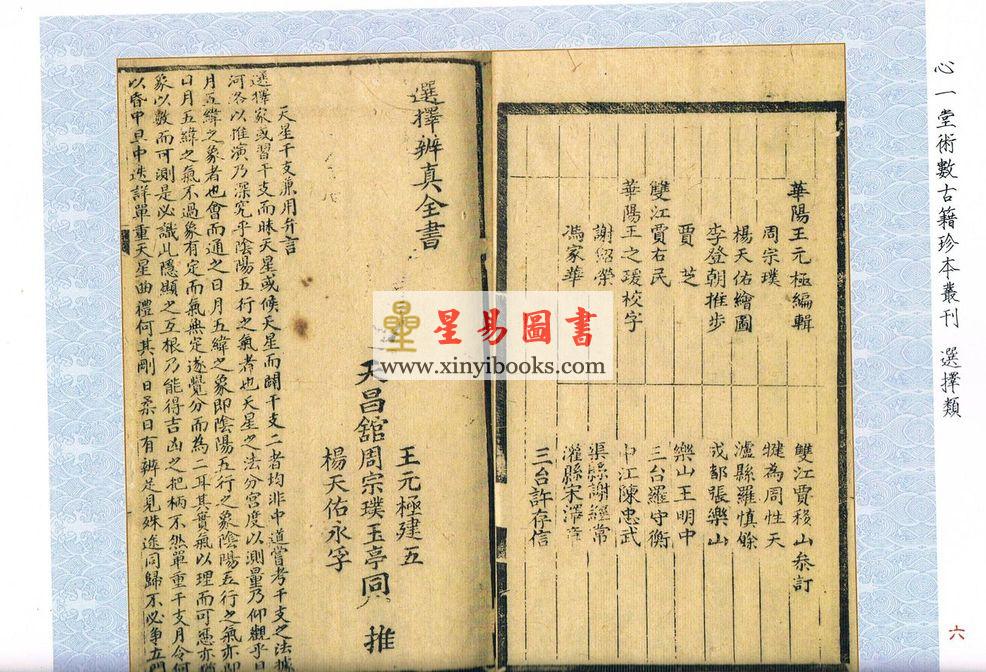 心一堂術數古籍珍本叢刊　選擇類
六
華陽王元極編輯
周宗璞
楊天佑繪圖
李登朝推步
賈芝
雙江賈右民
華陽王之瑗校字
謝紹榮
馮家華
雙江賈積山叅訂
犍為周性天
瀘縣羅慎餘
成都張樂山
樂山王明中
三台羅守衡
中江陳忠武
渠縣謝經常
灌縣宋澤
三台許存信
選擇辨真全書
王元極建五
天昌舘周宗璞玉亭同推
楊天佑永孚
天星干支兼用弁言
選擇家或習干支而昧天星或候天星而闢干支二者均非中道嘗考干支之法據
河洛以推演乃深究乎陰陽五行之氣者也天星之法分宮度以測量乃仰觀乎日
月五緯之象者也會而通之日月五緯之象即陰陽五行之象陰陽五行之氣亦即
日月五緯之氣不過象有定而氣無定遂覺分而為二耳其實氣以理而可憑亦猶
象以數而可測是必識此隱顯之互根乃能得吉凶之把柄不然單重干支月令何
以昏中旦中迭詳單重天星曲禮何其剛日柔日有辨足見殊途同歸不必爭立門
星易圖書
www.xinyibooks.com